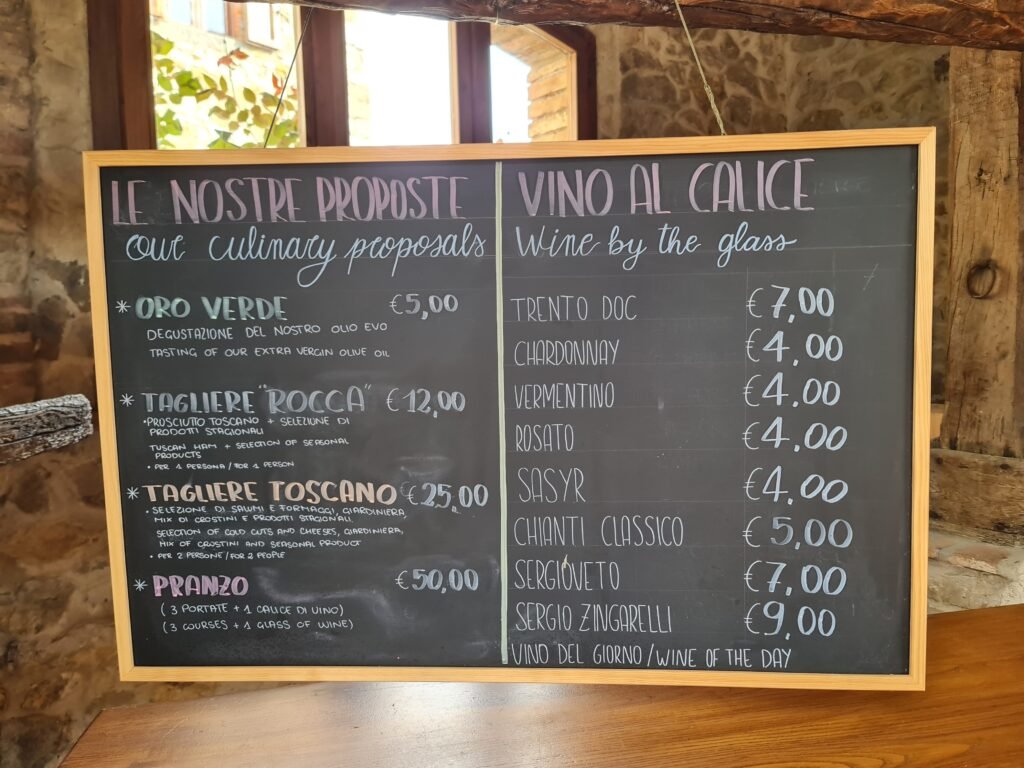 LE NOSTRE PROPOSTE
our culinary proposals
* ORO VERDE €5,00
DEGUSTAZIONE DEL NOSTRO OLIO EVO
TASTING OF OUR EXTRA VERGIN OLIVE OIL
* TAGLIERE "ROCCA" €12,00
• PROSCIUTTO TOSCANO + SELEZIONE DI
PRODOTTI STAGIONALI
TUSCAN HAM + SELECTION OF SEASONAL
PRODUCTS
• PER 1 PERSONA / FOR 1 PERSON
* TAGLIERE TOSCANO €25,00
• SELEZIONE DI SALUMI E FORMAGGI, GIARDINIERA,
MIX DI CROSTINI E PRODOTTI STAGIONALI.
SELECTION OF COLD CUTS AND CHEESES, GIARDINIERA,
MIX OF CROSTINI AND SEASONAL PRODUCT
• PER 2 PERSONE / FOR 2 PEOPLE
* PRANZO €50,00
(3 PORTATE + 1 CALICE DI VINO)
(3 COURSES + 1 GLASS OF WINE)
VINO AL CALICE
Wine by the glass
TRENTO DOC €7,00
CHARDONNAY €4,00
VERMENTINO €4,00
ROSATO €4,00
SASYR €4,00
CHIANTI CLASSICO €5,00
SERGIOVETO €7,00
SERGIO ZINGARELLI €9,00
VINO DEL GIORNO/WINE OF THE DAY